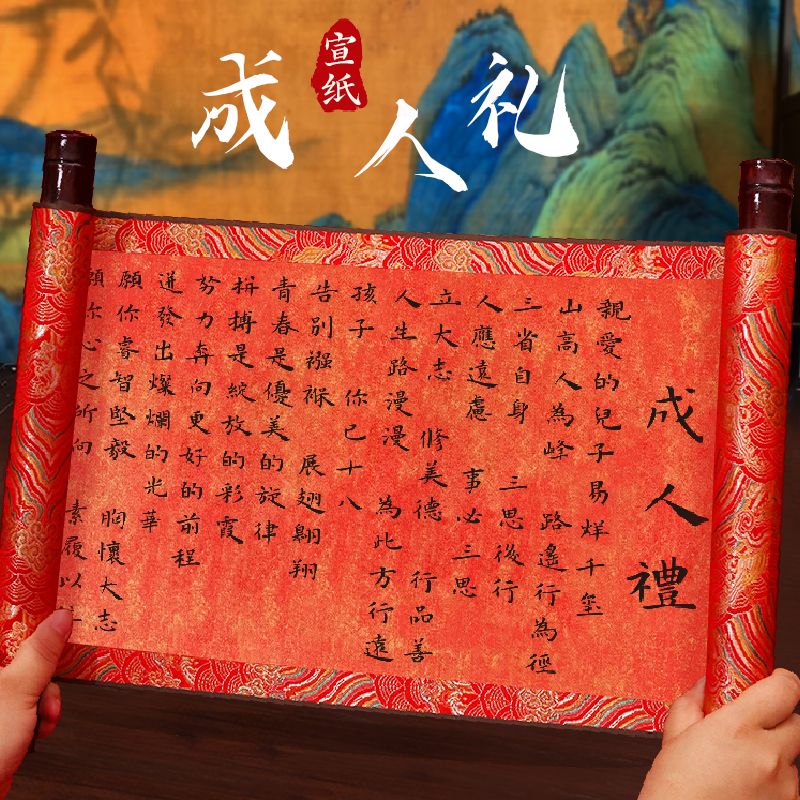 宣纸
成人礼
成人禮
親愛的兒子易烊千玺
山高人為峰 路遙行為徑
三省自身 三思後行
人應遠慮 事必三思
立大志 修美德 行品善
人生路漫漫 為此方行遠
孩子 你已十八
告別襁褓 展翅翱翔
青春是優美的旋律
拼搏是綻放的彩霞
努力奔向更好的前程
迸發出燦爛的光華
願你睿智堅毅 胸懷大志
願你心之所向 素履以